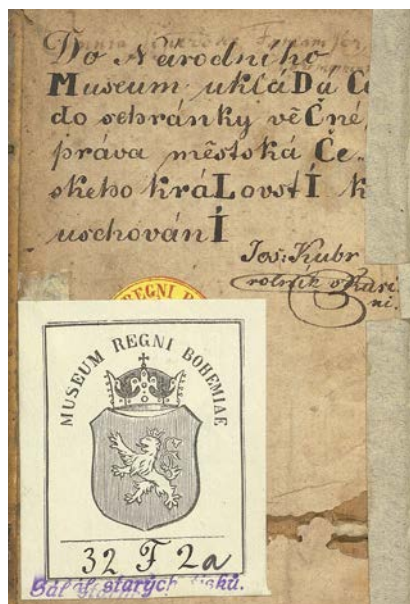 Do Národního
Museum ukláDá Ct
do schránky věČné
práva městská Če-
ského kráLovstÍ k
uschovánÍ
Jos: Kubr
rolník
REGNI B
MUSEUM REGNI BOHEMIAE
32 F 2a
starých tisků.